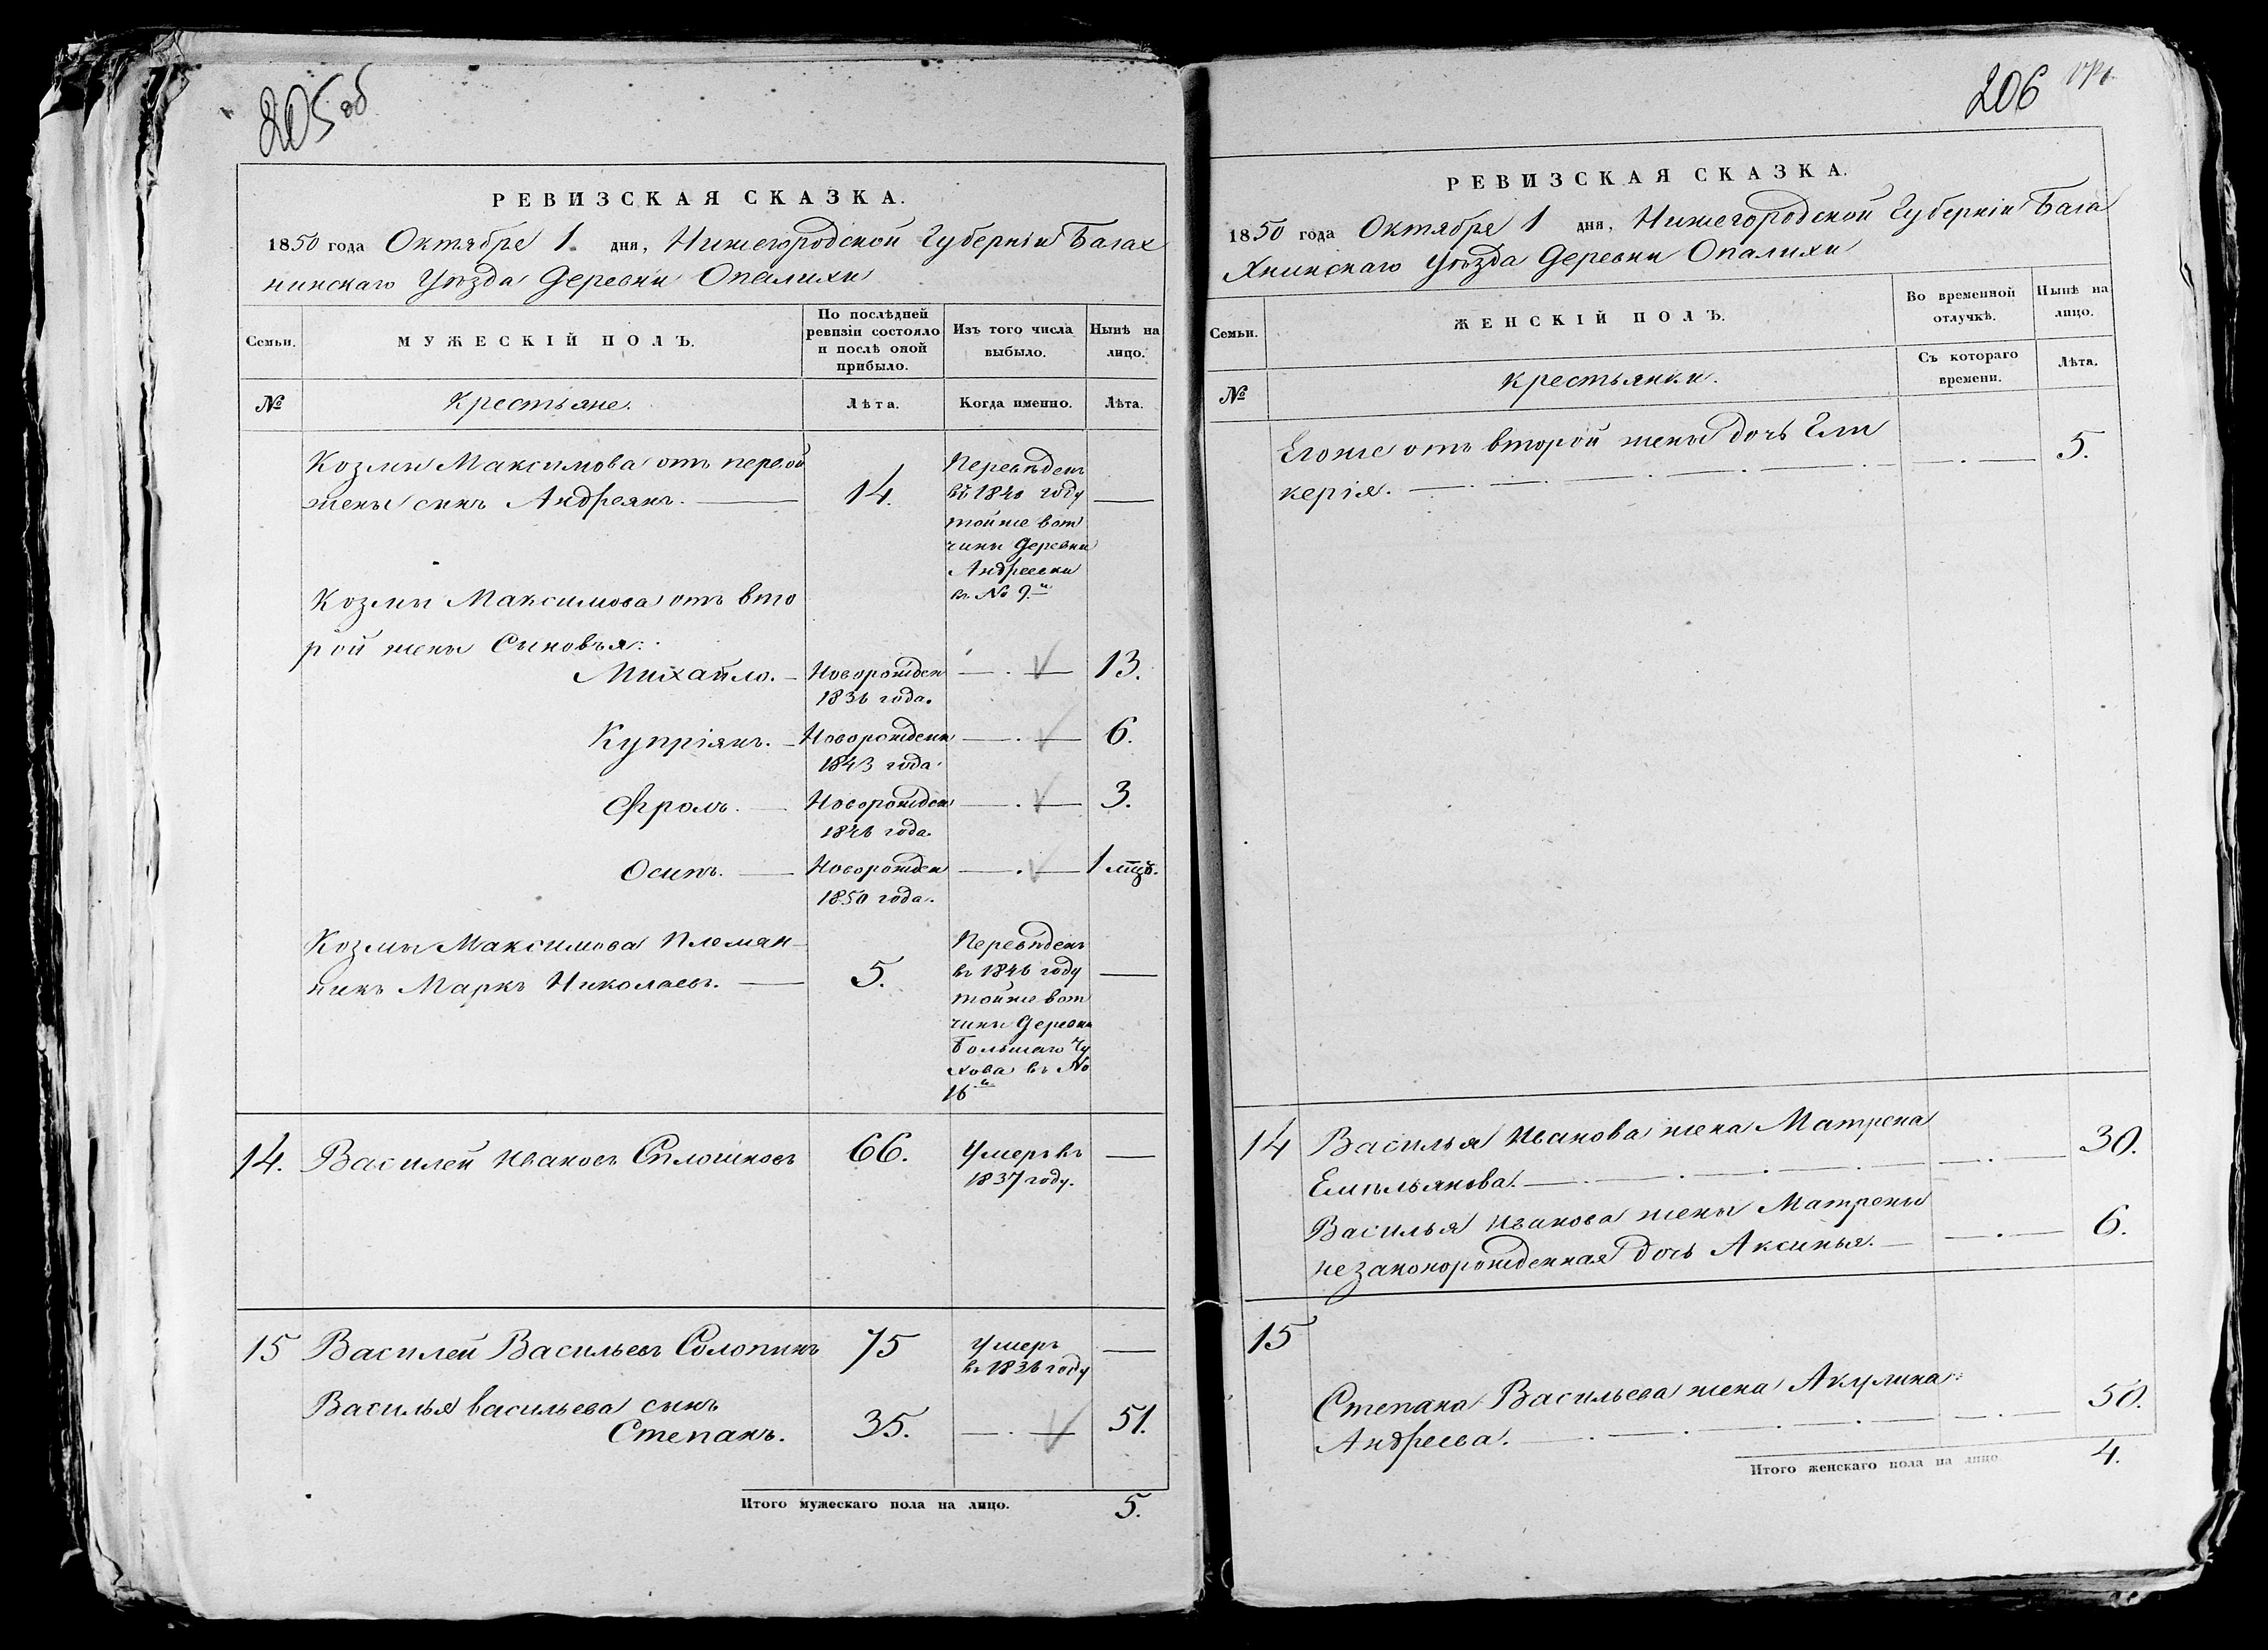 205 об
РЕВИЗСКАЯ СКАЗКА.
1850 года Октября 1. дня, Нижегородской Губерніи Балах
нинскаго Уѣзда Деревни Опалихи
Семьи.
МУЖЕСКІЙ ПОЛЪ.
По послѣдней
ревизіи состояло
и послѣ оной
прибыло.
Изъ того числа
выбыло.
Нынѣ на
лицо.
№
Крестьяне.
Лѣта.
Когда именно.
Лѣта.
Козмы Максимова отъ первой
жены сынъ Андреянъ.
14.
Переведенъ
въ 1840 году
тойже вот
чины Деревни
Андреевки
въ № 9.й
Козмы Максимова отъ вто
рой жены Сыновья:
Михайло.
Новорожден
1836 года.
13.
Купріянъ.
Новорожденъ
1843 года.
6.
Фролъ.
Новорожден
1846 года.
3.
Осипъ.
Новорожден
1850 года.
1 мцъ.
Козмы Максимова Племян
никъ Маркъ Николаевъ.
5.
Переведенъ
въ 1846 году
тойже вот
чины Деревни
Большаго Чу
хова въ №
16й
14.
Василей Ивановъ Сплошновъ
66.
Умеръ въ
1837 году.
15
Василей Васильевъ Солопинъ
75
Умеръ
въ 1836 году
Василья васильева сынъ
Степанъ.
35.
51.
Итого мужескаго пола на лицо.
5.
206
РЕВИЗСКАЯ СКАЗКА.
1850 года Октября 1 дня, Нижегородской Губерніи Бала
хнинскаго Уѣзда Деревни Опалихи
Семьи.
ЖЕНСКІЙ ПОЛЪ.
Во временной
отлучкѣ.
Нынѣ на
лицо.
№
Крестьянки.
Съ котораго
времени.
Лѣта.
Егоже отъ второй жены дочь Гли
керія.
5.
14
Василья Иванова жена Матрена
Емельянова.
30.
Василья Иванова жены Матрены
незаконорожденная дочь Аксинья.
6.
15
Степана Васильева жена Акулина
Андреева.
50.
Итого женскаго пола на лицо.
4.